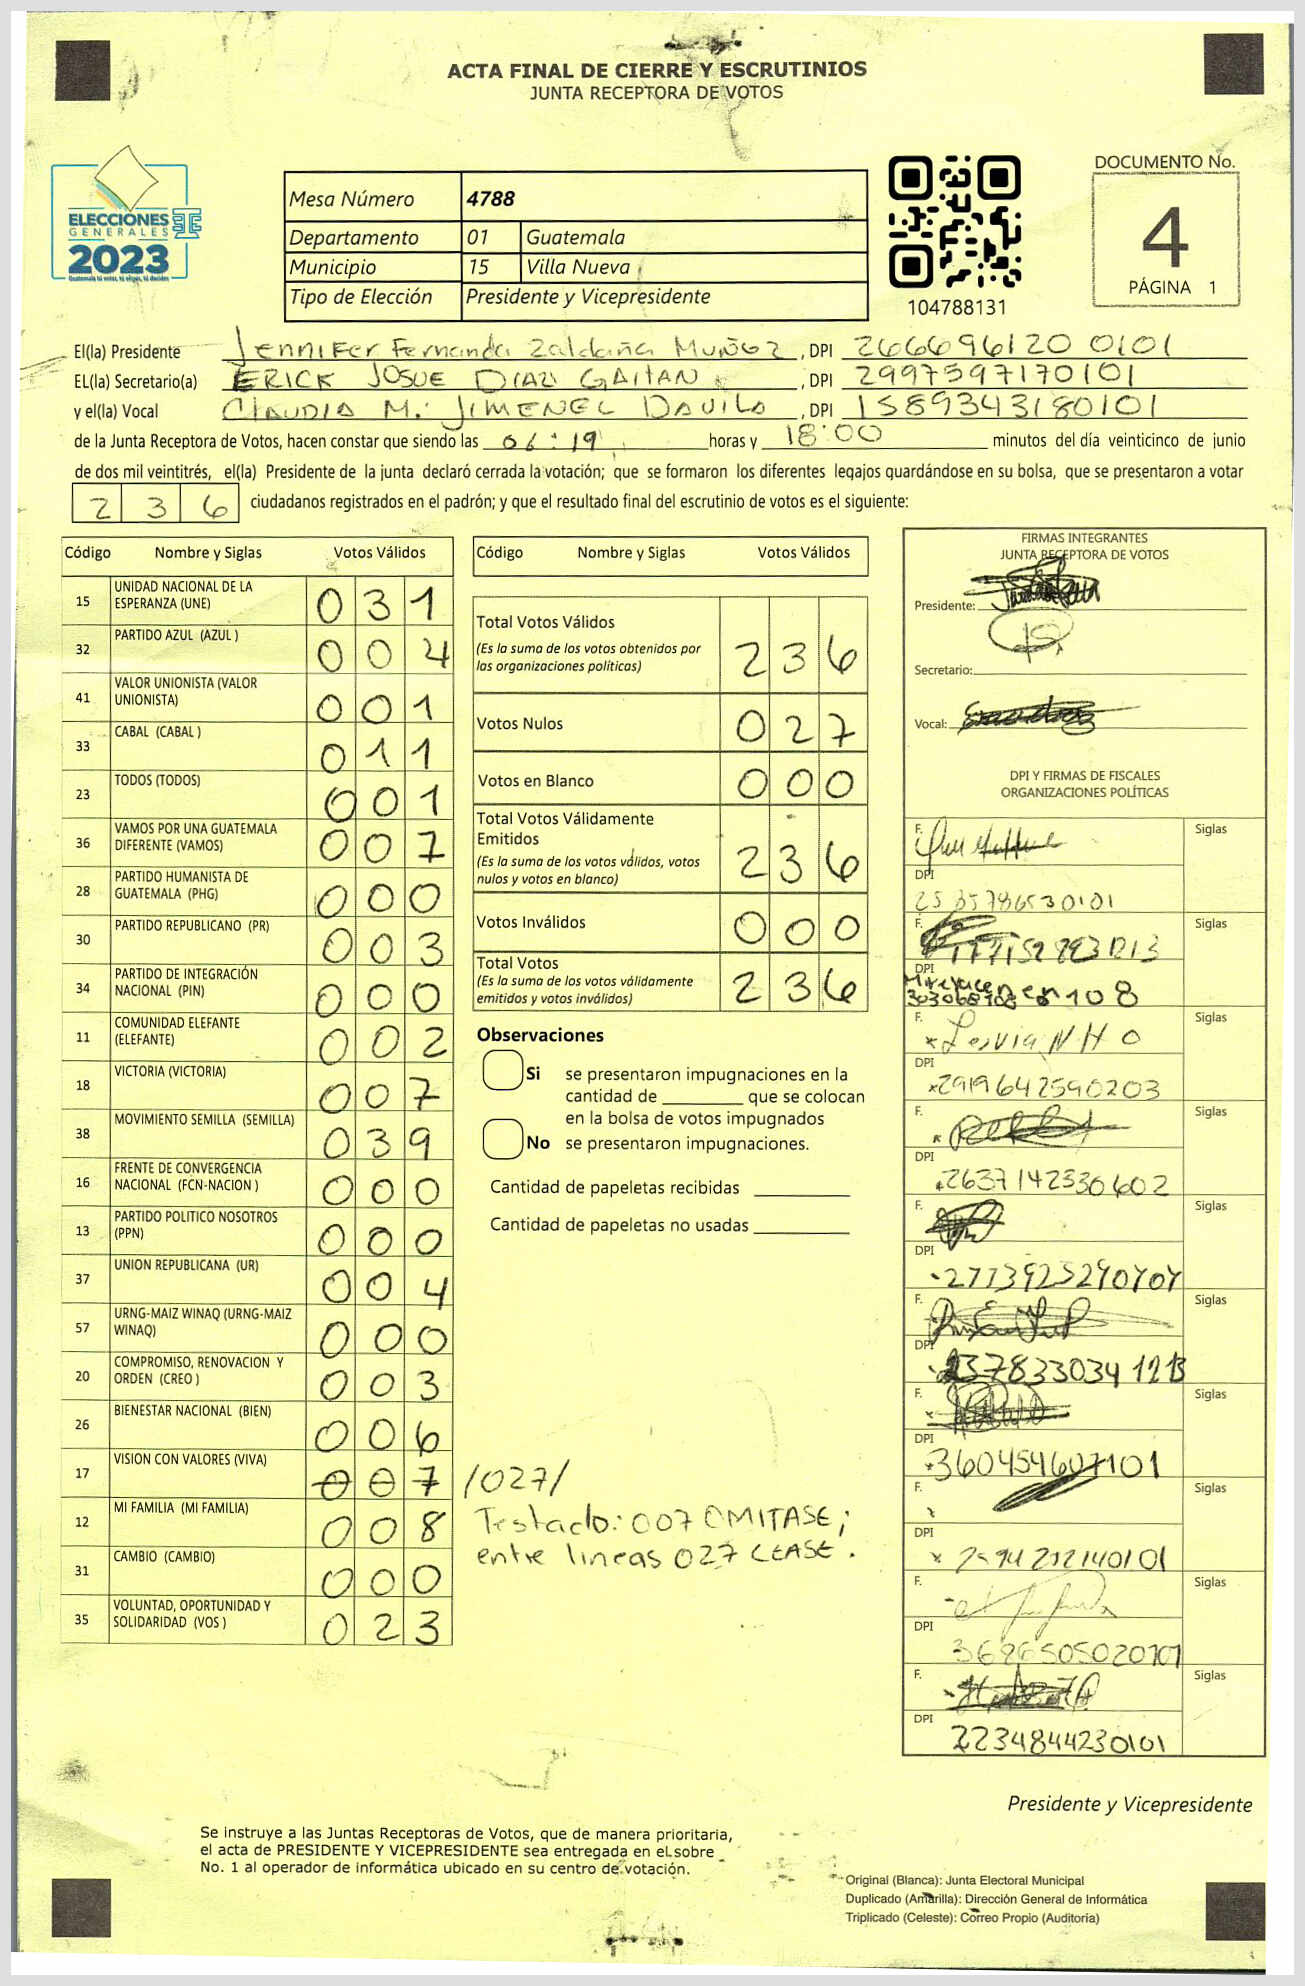 ACTA FINAL DE CIERRE Y ESCRUTINIOS
JUNTA RECEPTORA DE VOTOS
ELECCIONES
GENERALES
2023
Mesa Número 4788
Departamento 01 Guatemala
Municipio 15 Villa Nueva
Tipo de Elección Presidente y Vicepresidente
104788131
DOCUMENTO No.
4
PÁGINA 1
El(la) Presidente Jennifer Fernanda Zaldaña Muñoz, DPI 266696120 0101
EL(la) Secretario(a) ERICK JOSUE DIAZ GAITAN, DPI 2997597170101
y el(la) Vocal CLAUDIA M. JIMENEZ DAVILA, DPI 1589343180101
de la Junta Receptora de Votos, hacen constar que siendo las 06:19 horas y 18:00 minutos del día veinticinco de junio
de dos mil veintitrés, el(la) Presidente de la junta declaró cerrada la votación; que se formaron los diferentes legajos guardándose en su bolsa, que se presentaron a votar
2 3 6 ciudadanos registrados en el padrón; y que el resultado final del escrutinio de votos es el siguiente:
Código Nombre y Siglas Votos Válidos
15 UNIDAD NACIONAL DE LA ESPERANZA (UNE) 0 3 1
32 PARTIDO AZUL (AZUL ) 0 0 4
41 VALOR UNIONISTA (VALOR UNIONISTA) 0 0 1
33 CABAL (CABAL ) 0 1 1
23 TODOS (TODOS) 0 0 1
36 VAMOS POR UNA GUATEMALA DIFERENTE (VAMOS) 0 0 7
28 PARTIDO HUMANISTA DE GUATEMALA (PHG) 0 0 0
30 PARTIDO REPUBLICANO (PR) 0 0 3
34 PARTIDO DE INTEGRACIÓN NACIONAL (PIN) 0 0 0
11 COMUNIDAD ELEFANTE (ELEFANTE) 0 0 2
18 VICTORIA (VICTORIA) 0 0 7
38 MOVIMIENTO SEMILLA (SEMILLA) 0 3 9
16 FRENTE DE CONVERGENCIA NACIONAL (FCN-NACION ) 0 0 0
13 PARTIDO POLITICO NOSOTROS (PPN) 0 0 0
37 UNION REPUBLICANA (UR) 0 0 4
57 URNG-MAIZ WINAQ (URNG-MAIZ WINAQ) 0 0 0
20 COMPROMISO, RENOVACION Y ORDEN (CREO ) 0 0 3
26 BIENESTAR NACIONAL (BIEN) 0 0 6
17 VISION CON VALORES (VIVA) 0 0 7 /027/
12 MI FAMILIA (MI FAMILIA) 0 0 8
31 CAMBIO (CAMBIO) 0 0 0
35 VOLUNTAD, OPORTUNIDAD Y SOLIDARIDAD (VOS ) 0 2 3
Testado: 007 OMITASE;
entre lineas 027 LEASE.
Código Nombre y Siglas Votos Válidos
Total Votos Válidos
(Es la suma de los votos obtenidos por
las organizaciones políticas) 2 3 6
Votos Nulos 0 2 7
Votos en Blanco 0 0 0
Total Votos Válidamente
Emitidos
(Es la suma de los votos válidos, votos
nulos y votos en blanco) 2 3 6
Votos Inválidos 0 0 0
Total Votos
(Es la suma de los votos válidamente
emitidos y votos inválidos) 2 3 6
Observaciones
Si se presentaron impugnaciones en la
cantidad de ________ que se colocan
en la bolsa de votos impugnados
No se presentaron impugnaciones.
Cantidad de papeletas recibidas
Cantidad de papeletas no usadas
FIRMAS INTEGRANTES
JUNTA RECEPTORA DE VOTOS
Presidente:
Secretario:
Vocal:
DPI Y FIRMAS DE FISCALES
ORGANIZACIONES POLÍTICAS
F. Siglas
DPI
F. Siglas
DPI
F. Siglas
DPI
2919642590203
F. Siglas
DPI
2637142330602
F. Siglas
DPI
F. Siglas
DPI
F. Siglas
DPI
360454607101
F. Siglas
DPI
F. Siglas
DPI
F. Siglas
DPI
2234844230101
Presidente y Vicepresidente
Se instruye a las Juntas Receptoras de Votos, que de manera prioritaria,
el acta de PRESIDENTE Y VICEPRESIDENTE sea entregada en el sobre
No. 1 al operador de informática ubicado en su centro de votación.
Original (Blanca): Junta Electoral Municipal
Duplicado (Amarilla): Dirección General de Informática
Triplicado (Celeste): Correo Propio (Auditoría)